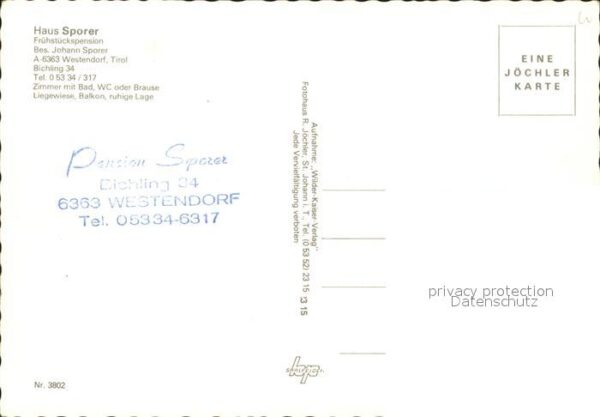 Haus Sporer
Frühstückspension
Bes. Johann Sporer
A-6363 Westendorf, Tirol
Bichling 34
Tel. 0 53 34 / 317
Zimmer mit Bad, WC oder Brause
Liegewiese, Balkon, ruhige Lage
EINE
JÖCHLER
KARTE
Pension Sporer
Bichling 34
6363 WESTENDORF
Tel. 05334-6317
Aufnahme: „Wilder-Kaiser-Verlag"
Fotohaus R. Jöchler, St. Johann i. T., Tel. (0 53 52) 23 15
Jede Vervielfältigung verboten
privacy protection
Datenschutz
Nr. 3802